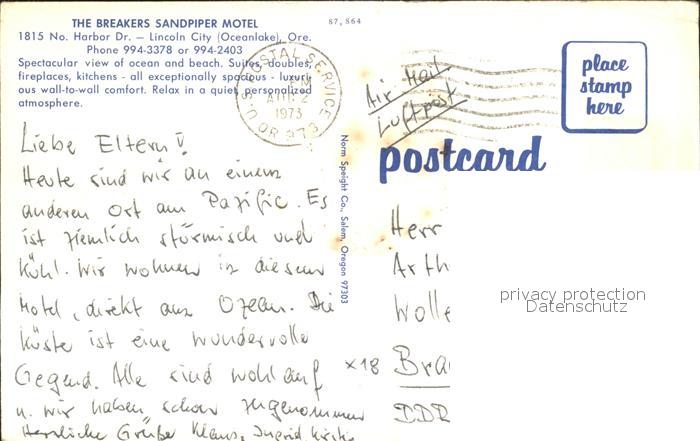 THE BREAKERS SANDPIPER MOTEL
1815 No. Harbor Dr. — Lincoln City (Oceanlake), Ore.
Phone 994-3378 or 994-2403
Spectacular view of ocean and beach. Suites, doubles,
fireplaces, kitchens - all exceptionally spacious - luxuri-
ous wall-to-wall comfort. Relax in a quiet, personalized
atmosphere.
87,864
U.S. POSTAL SERVICE
PM
AUG 2
1973
OR 973
Air Mail
Luftpost
place
stamp
here
postcard
Norm Speight Co., Salem, Oregon 97303
Liebe Eltern!
Heute sind wir an einem
anderen Ort am Pazific. Es
ist ziemlich stürmisch und
kühl. Wir wohnen in diesem
Motel, direkt am Ozean. Die
Küste ist eine wundervolle
Gegend. Alle sind wohlauf
u. wir haben schon zugenommen
Herzliche Grüße Klaus, Ingrid
Herr
Arth
Wolle
x18 Bra
DDR
privacy protection
Datenschutz